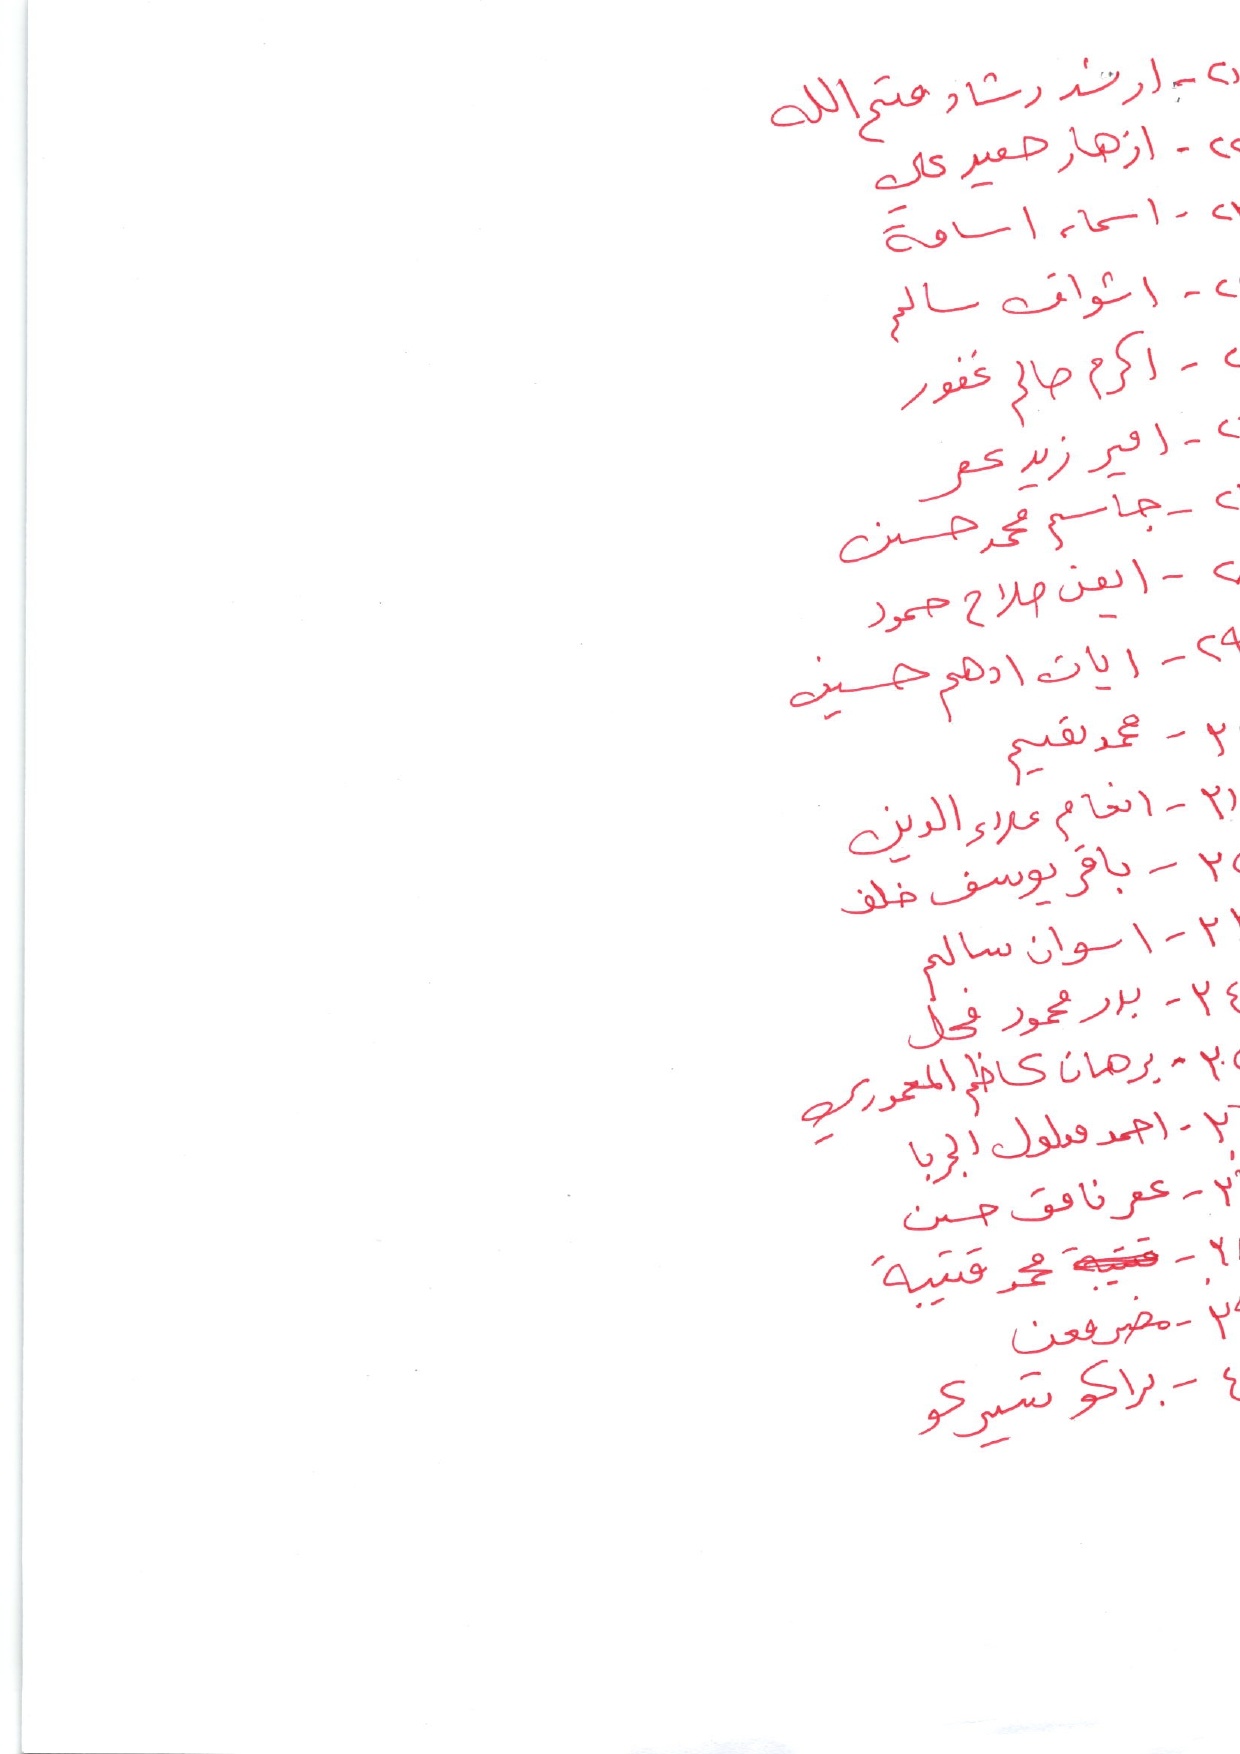 ٢١- ارشد رشاد فتح الله
٢٢- ازهار حميد علي
٢٣- اسماء اسامة
٢٤- اشواق سالم
٢٥- اكرم صالح غفور
٢٦- امير زيد عمر
٢٧- جاسم محمد حسين
٢٨- ايمن صلاح حمود
٢٩- ايات ادهم حسين
٣٠- محمد نعيم
٣١- انغام علاء الدين
٣٢- باقر يوسف خلف
٣٣- اسوان سالم
٣٤- بدر محمود فحل
٣٥- برهان كاظم المعموري
٣٦- احمد مدلول الجربا
٣٧- عمر نافق حسن
٣٨- محمد قتيبة
٣٩- مضر معن
٤٠- براكو شيركو